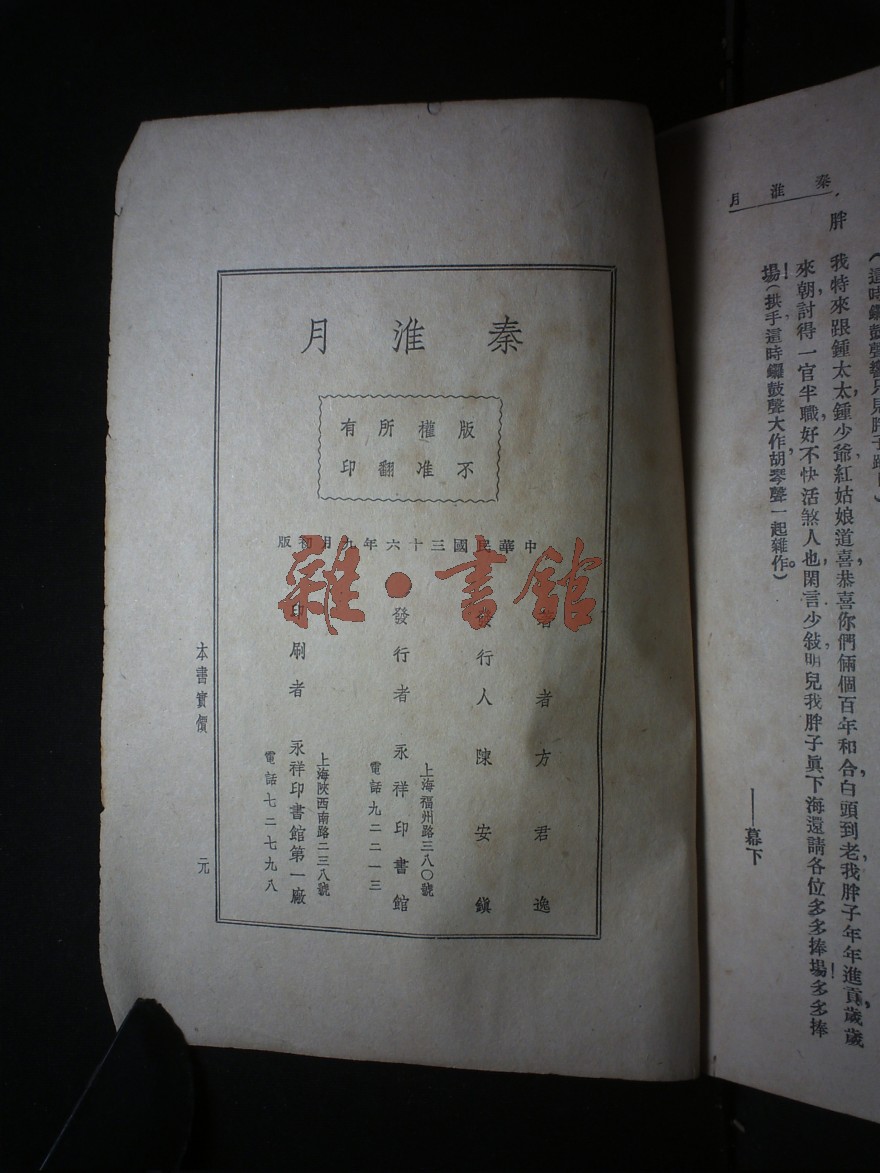 秦淮月
胖
(這時鑼鼓聲響只見胖子
我特來跟鍾太太,鍾少爺,紅姑娘道喜,恭喜你們倆個百年和合,白頭到老,我胖子年年進貢,歲歲
來朝,討得一官半職,好不快活煞人也,閑言少敍,明兒我胖子眞下海,還請各位多多捧場!多多捧
場!(拱手,這時鑼鼓聲大作,胡琴聲一起雜作。)
——幕下
秦淮月
版權所有
不准翻印
中華民國三十六年九月初版
著者方君逸
發行人陳安鎭
發行者永祥印書館
上海福州路三八〇號
電話九二二一三
印刷者永祥印書館第一廠
上海陝西南路二三八號
電話七二七九八
本書實價 元
雜·書館